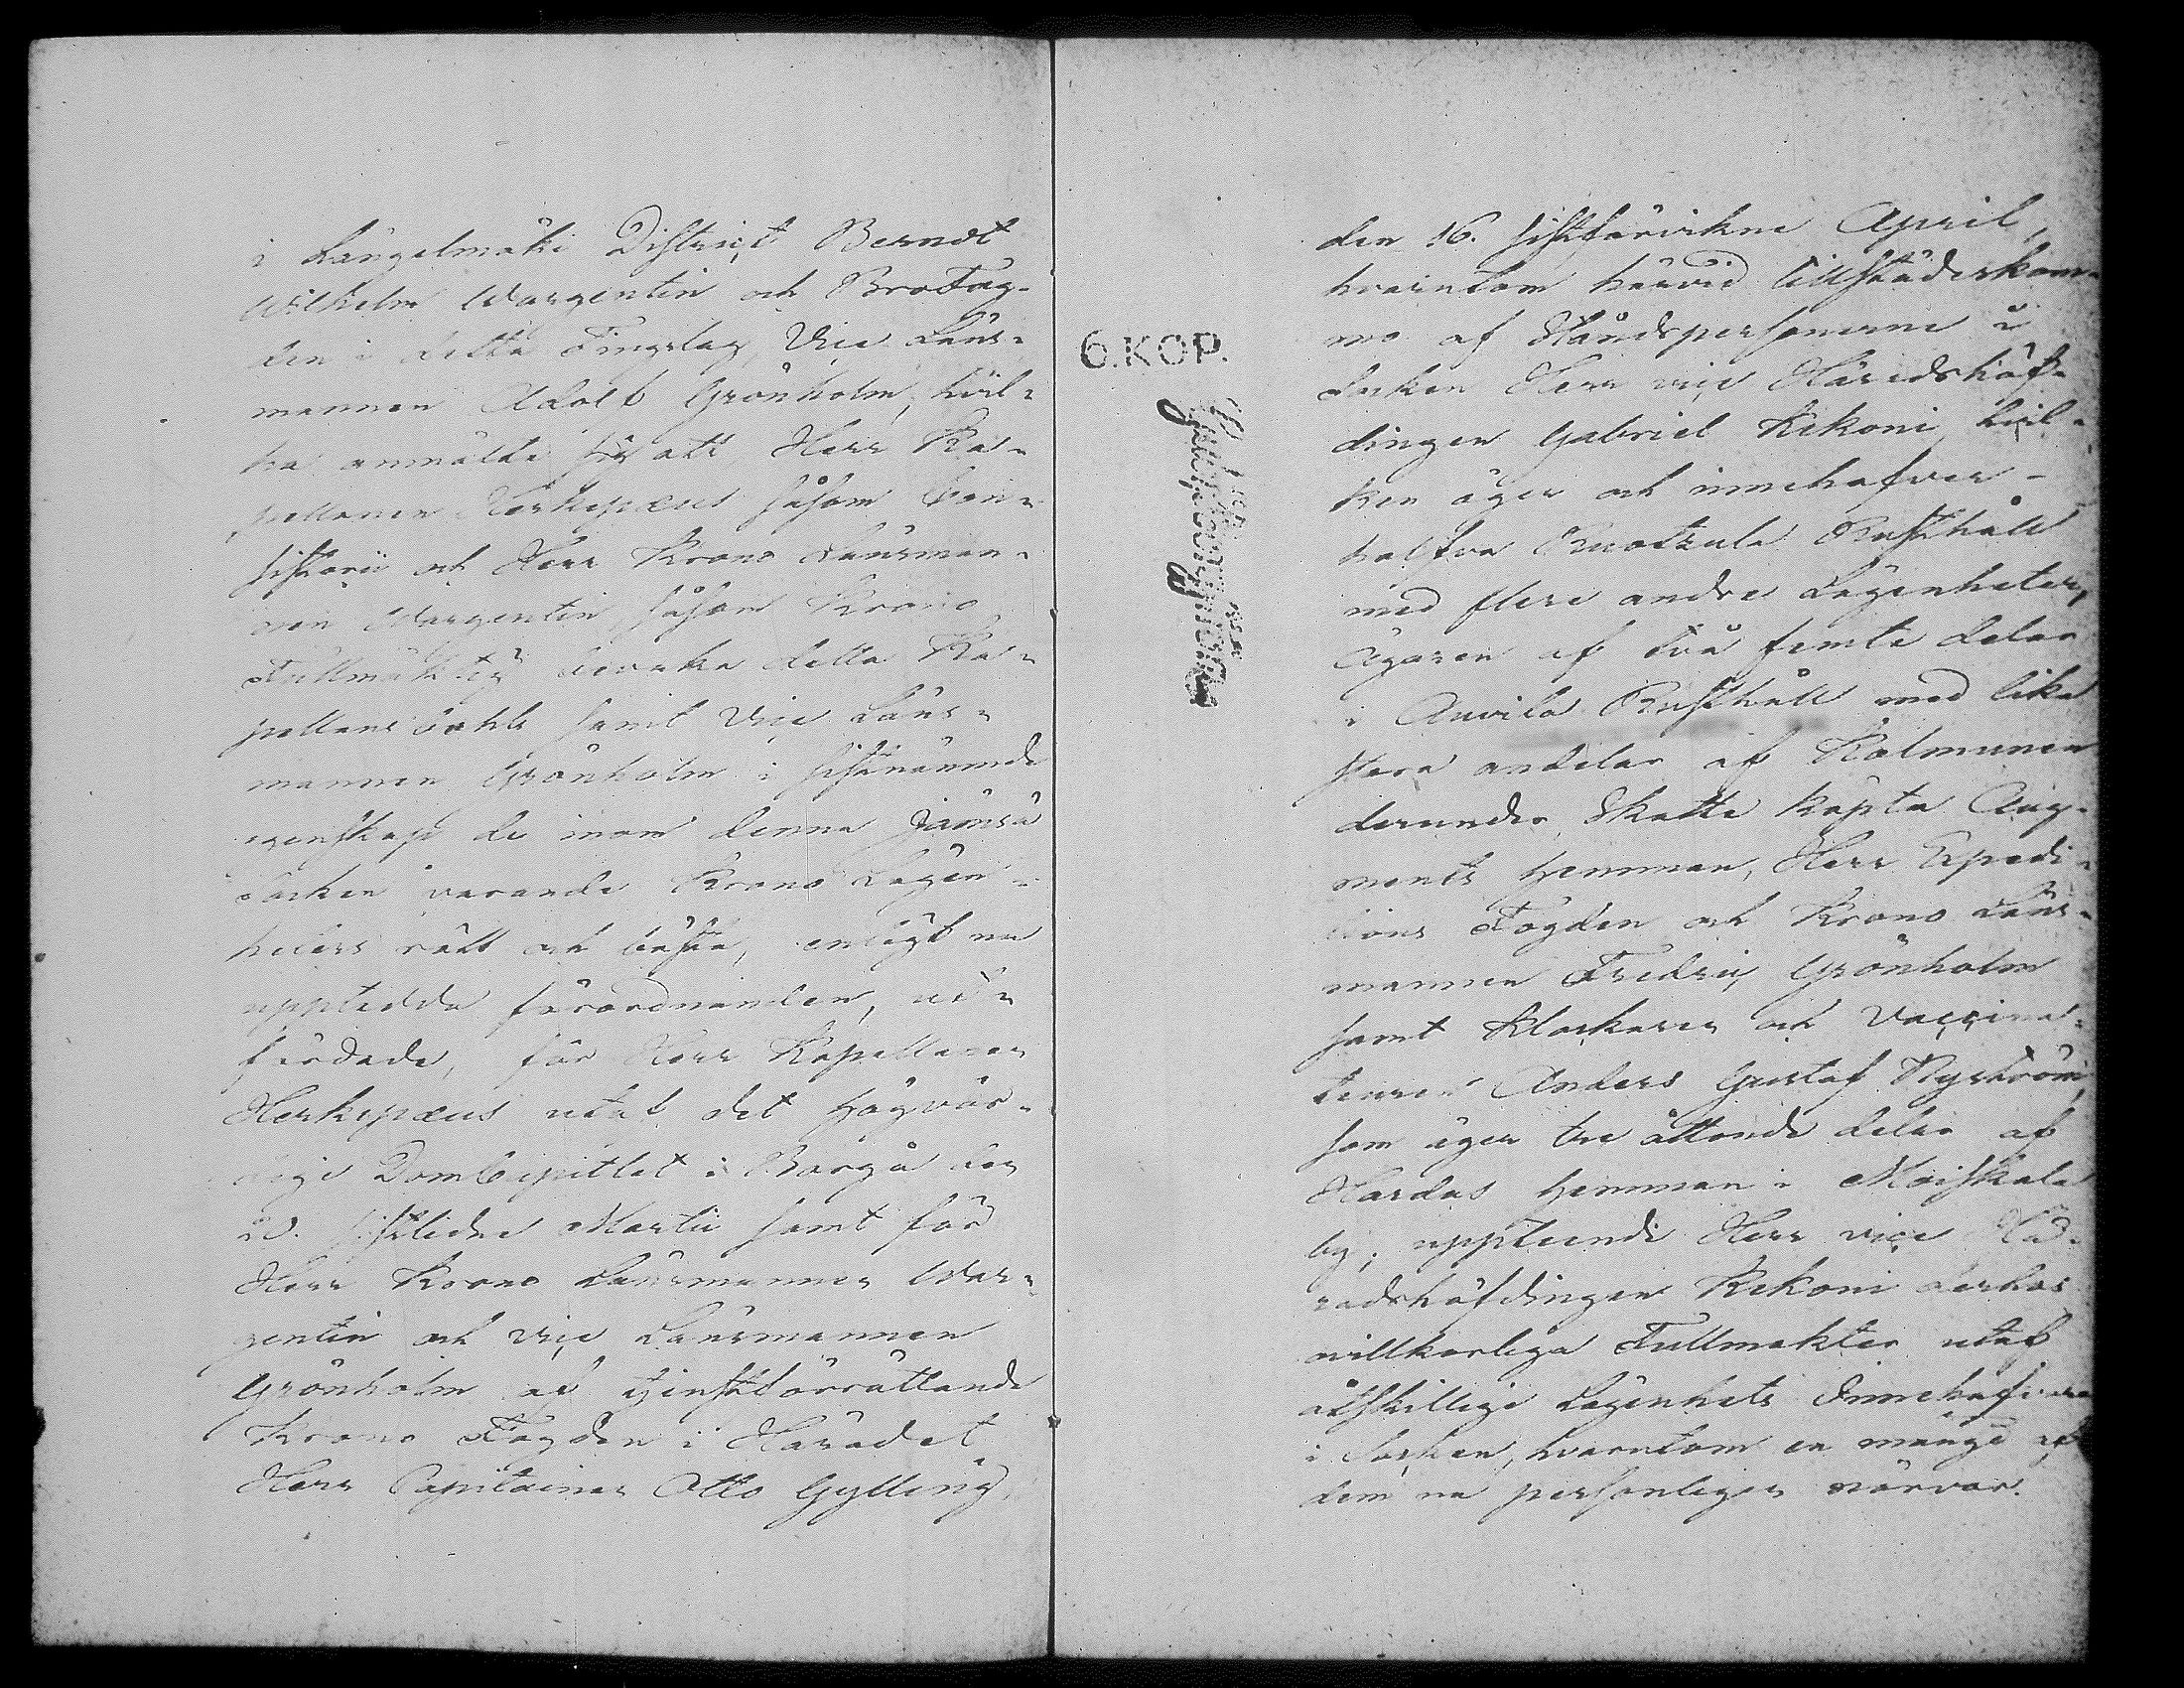 i Längelmäki District Berndt
Wilhelm Wargentin och BroFog-
den i detta Tingslag, Vice Läns-
mannen Adolf Grönholm, hvil-
ka anmälte sig att Herr Ka-
pellanen Herkepæus såsom Con-
sistorii och Herr Krono Länsman-
nen Wargentin såsom Krono
Fullmäktig bevaka detta Ka-
pellans samt Vice Läns-
mannen Grönholm i sistnämnde
egenskap de inom denna Jämsä
Socken varande Krono Lägen-
heters rätt och bästa, enligt nu
uppteedde förordnanden, ut-
färdade, för Herr Kapellanen
Herkepæus utaf det Högvör-
dige DomCapitlet i Borgå den
20. sistledne Martii samt för
Herr Krono Länsmannen War-
gentin och Vice Länsmannen
Grönholm af tjenstförrättande
Krono Fogden i Häradet
Herr Capitainen Otto Gylling
6.KOP.
den 16. sistförvikne April,
hvarutom härvid tillstädeskom-
mo af Ståndspersonerne i
Socken Herr vice Häradshöf-
dingen Gabriel Kekoni, hvil-
ken äger och innehafver
halfva Ruotsula Rusthåll
med flere andre Lägenheter,
Ägaren af två femte delar
i Auvila Rusthåll med lika
stora andelar af Kolmunen
derunder Skatte köpta Aug-
ments Hemman, Herr Expedi-
tions Fogden och Krono Läns-
mannen Fredric Grönholm
samt Klockaren och Vaccina-
teuren Anders Gustaf Nyström,
som äger tre åttonde delar af
Hardus Hemman i Moiskala
by; uppteende Herr vice Hä-
radshöfdingen Kekoni derhos
willkorliga Fullmakter utaf
åtskillige Lägenhets Innehafvare
i Socken, hvarutom en mängd af
dem nu personligen närvar.